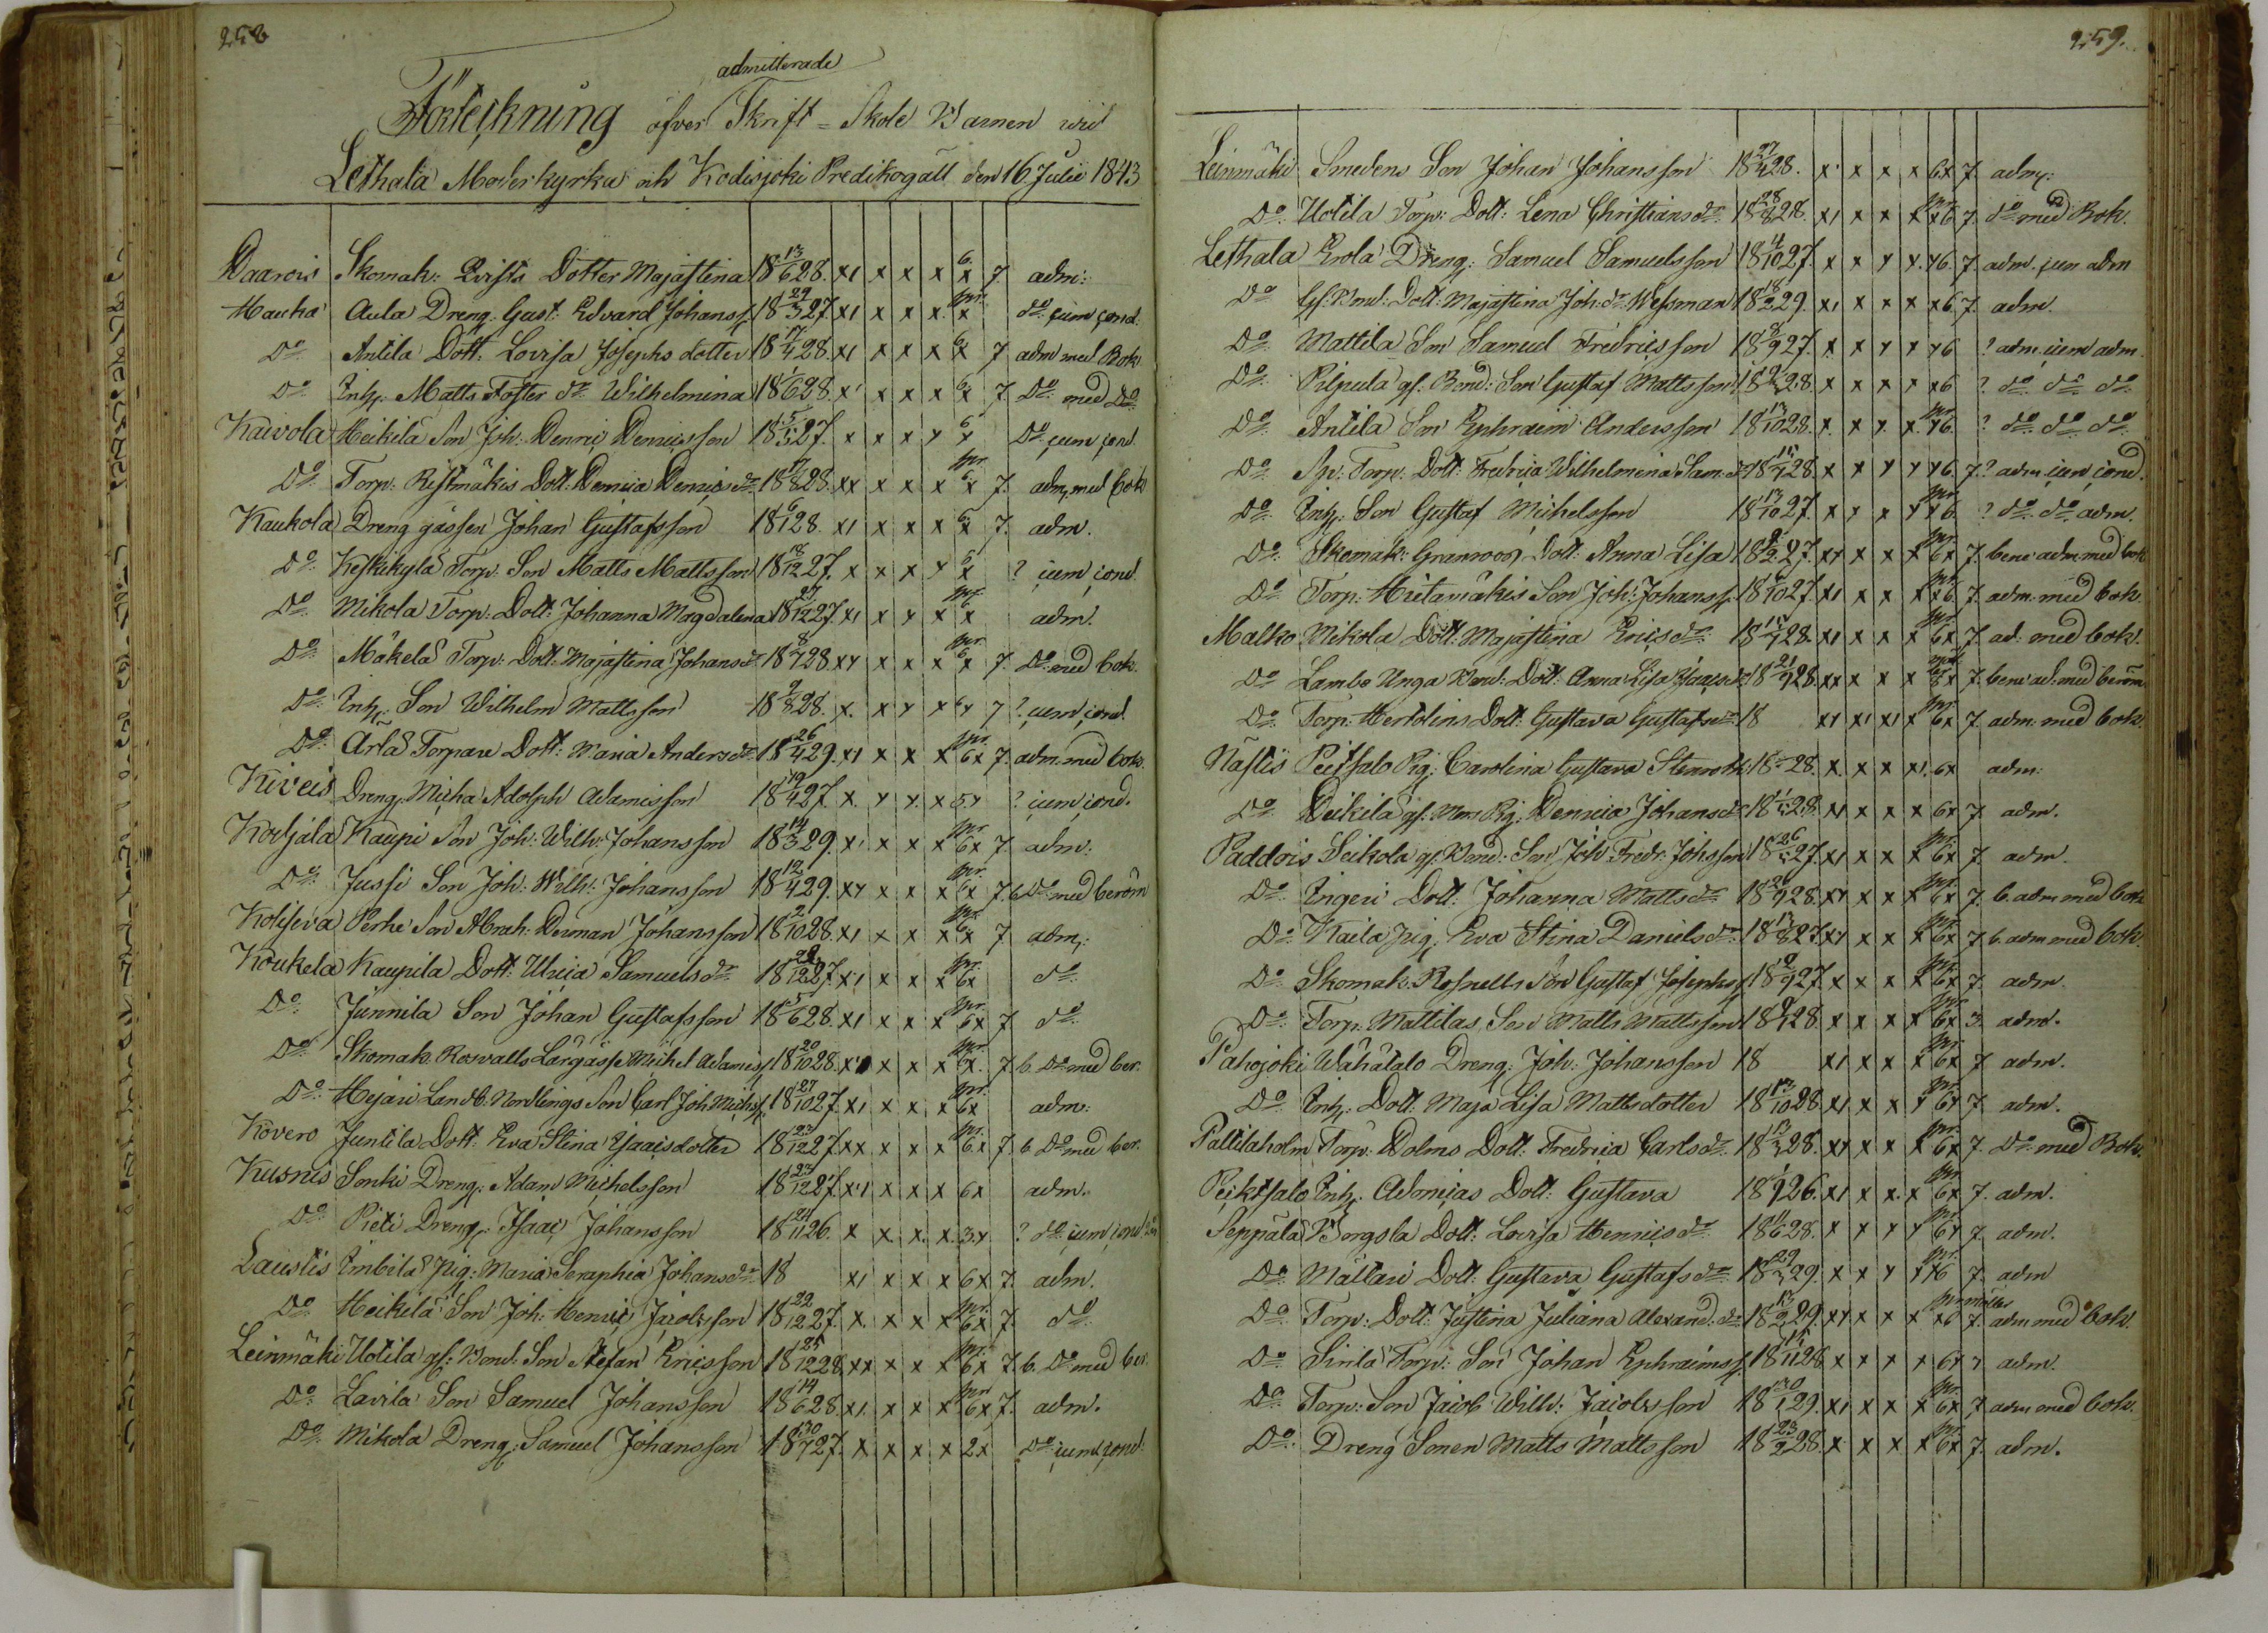 258
admitterade
Förteckning öfver Skrift=Skole Barnen wid
Lethala Moderkyrka och Kodisjoki Predikogäll den 16 Julii 1843
Haarois Skomak: Qvists Dotter Majastina 18 13/6 28. x1 x x x 6 x 7 adm:
Hauka Aula Dreng: Gust: Edvard Johanss: 18 29/3 27 x1 x x x x do cum cond.
Do Antila Dott: Lovisa Josephs dotter 18 17/4 28 x1 x x x 6 x 7 adm med Bok
Do Inh: Matts Foster dr Wilhelmina 18 1/6 28. x1 x x x 6 x 7 Do med Do
Kaivola Heikilä Son Joh: Henric Henricsson 18 5/3 27. x x x x 6 x Do cum cond
Do Torp: Ristmäkis Dott: Henrica Henricsdr 18 17/8 28. xx x x x 6 x 7. adm, med bok
Kaukola Dreng gåssen Johan Gustafsson 18 6/1 28. x1 x x x 6 x 7. adm.
Do Keskikylä Torp: Son Matts Mattsson 18 18/12 27. x x x x 5 x ? cum cond.
Do Mikola Torp: Dott: Johanna Magdalena 18 27/12 27. x1 x x x 6 x adm.
Do Mäkelä Torp: Dott: Majastina Johansdr 18 8/7 28 xx x x x 6 x 7. Do med bok.
Do Inh: Son Wilhelm Mattsson 18 9/8 28. x. x x x 6x 7 ? cum cond.
Do Arlä Torpare Dott: Maria Andersdr 18 26/4 29. x1 x x x 6x 7. adm. med bok.
Kiveis Dreng: Micha Adolph Adamsson 18 19/4 27 x. x x. x 5x ? cum cond.
Korjala Kaupi Son Joh: Wilh: Johansson 18 14/3 29. x1 x x x 6x 7 adm:
Do Jussi Son Joh: Wilh: Johansson 18 12/4 29. xx x x x 6x 7. b. Do med beröm
Kolseva Perhe Son Abrah: Herman Johansson 18 2/10 28. x1 x x x 6 x 7 adm:
Koukela Kaupila Dott: Ulrica Samuelsdr 18 28/12 27. x1 x x x 6x do
Do Junnila Son Johan Gustafsson 18 5/6 28. x1 x x x 6x 7 do
Do Skomak. Roswalls Lärgåsse Michel Adamss: 18 20/10 28. x x x x 6x. 7 b. Do med ber.
Do Hejari Landb. Nordlings Son Carl Joh. Michss: 18 27/10 27. x1 x x x 6x adm.
Kovero Juntila Dott: Eva Stina Isaacsdotter 18 23/12 27. xx x x x 6x 7. b. Do med ber.
Kusnis Sonki Dreng: Adam Michelsson 18 23/12 27. x1 x x x 6x adm.
Do Pieti Dreng: Isaac Johansson 18 24/11 26. x x. x. x. 3x ? do cum cond.
Laustis Imbilä Pig: Maria Seraphia Johansdr 18 x1 x x x 6x 7. adm.
Do Heikilä Son Joh: Henric Jacobsson 18 22/12 27. x. x x x 6x 7. do
Leinmäki Uotila gf: Bond: Son Stefan Ericsson 18 25/12 28. xx x x x 6x 7. b. Do med ber.
Do Lavila Son Samuel Johansson 18 14/6 28. x1. x x x 6x 7. adm.
Do Mikola Dreng: Samuel Johansson 18 30/7 27. x x x x 2x Do cum cond.
259.
Leinmäki Smedens Son Johan Johansson 18 27/4 28. x x x x 6x 7. adm:
Do Uotila Torp: Dott: Lena Christiansdr 18 28/8 28. x1 x x x x6 7. do med Bok.
Lethala Erola Dreng: Samuel Samuelsson 18 4/10 27. x x x x. x6. 7. adm. cum adm
Do Gf. Bond: Dott: Majastina Joh:dr Wessman 18 18/2 29. x1 x x x x6 7. adm.
Do Mattila Son Samuel Fredricsson 18 8/9 27. x x x x x6 ? adm. cum adm.
Do Pilpula gf. Bond: Son Gustaf Mattsson 18 28. x x x x x6 ? do do do
Do Antila Son Ephraim Andersson 18 13/10 28. x. x x. x x6. ? do do do
Do Torp. Dott: Fredrica Wilhelmina Sam:dr 18 28. x x x x x6. 7? adm cum cond.
Do Inh: Son Gustaf Michelsson 18 13/10 27. x x x x x6. ? do do adm.
Do Skomak: Granroos Dott: Anna Lisa 18 27. xx x x x 6x 7. bene adm med bok
Do Torp: Hietamäkis Son Joh: Johanss: 18 6/10 27. x1 x x x x6. 7. adm. med bok.
Malko Mikola Dott: Majastina Ericsdr 18 28. x1 x x x 6x 7. ad. med bok.
Do Lambo Unga Bond: Dott: Anna Lisa Isaacsdr 18 21/9 28. xx x x x 6x 7. bene ad. med beröm
Do Torp: Hertolins Dott: Gustava Gustafsdr 18 xx x1 x1 x 6x 7. adm. med bok.
Nästis Peitsalo Pig: Carolina Gustava Stenroth 18 28. x. x x x1. 6x adm:
Do Heikilä gf. Pig: Henrica Johansdr 18 28. x1 x x x 6x 7. adm.
Paddois Seikola gf. Bond: Son Joh Fredr: Johsson 18 26/5 27. x1 x x x 6x 7. adm.
Do Ingeri Dott: Johanna Mattsdr 18 9 28. xx x x x 6x 7. b. adm med bok
Do Kaila Pig. Eva Stina Danielsdr 18 13/8 27. xx x x x 6x 7. b. adm med bok.
Do Skomak. Rosnells Son Gustaf Josephs: 18 9 27. x x x x 6x 7. adm.
Do Torp: Mattilas Son Matts Mattsson 18 28. x x x x 6x 3. adm.
Pahojoki Wähätalo Dreng: Joh: Johansson 18 x1 x x x 6x 7 adm.
Do Inh: Dott: Maja Lisa Mattsdotter 18 13/10 28. x1 x x x 6x 7 adm.
Pattilaholm Torp: Holms Dott: Fredrica Carlsdr 18 28. xx x x x 6x 7. Do med Bok.
Peiktsalo Inh: Adamias Dott: Gustava 18 1/9 26. x1 x x. x 6x 7. adm.
Seppälä Borgsla Dott: Lovisa Henricsdr 18 11/6 28. x x x x 6x 7 adm.
Do Mattari Dott: Gustava Gustafsdr 18 29 29. x x x x x6 7. adm
Do Torp: Dott: Justina Juliana Alexand:dr 18 13/2 29. xx x x x x6 7. adm med bok.
Do Sinla Torp: Son Johan Ephraims: 18 15/11 28 x x x x 6x 7 adm.
Do Torp: Son Jacob Wilh: Jacobsson 18 30/1 29. x1 x x x 6x 7. adm med bok.
Do Dreng Sonen Matts Mattsson 18 23/2 28. x x x x 6x 7. adm.